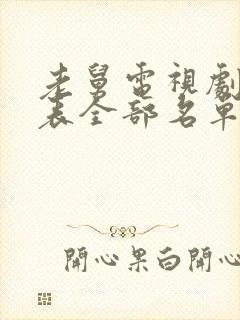 老舅電視劇
表全部名單
開心果白開心